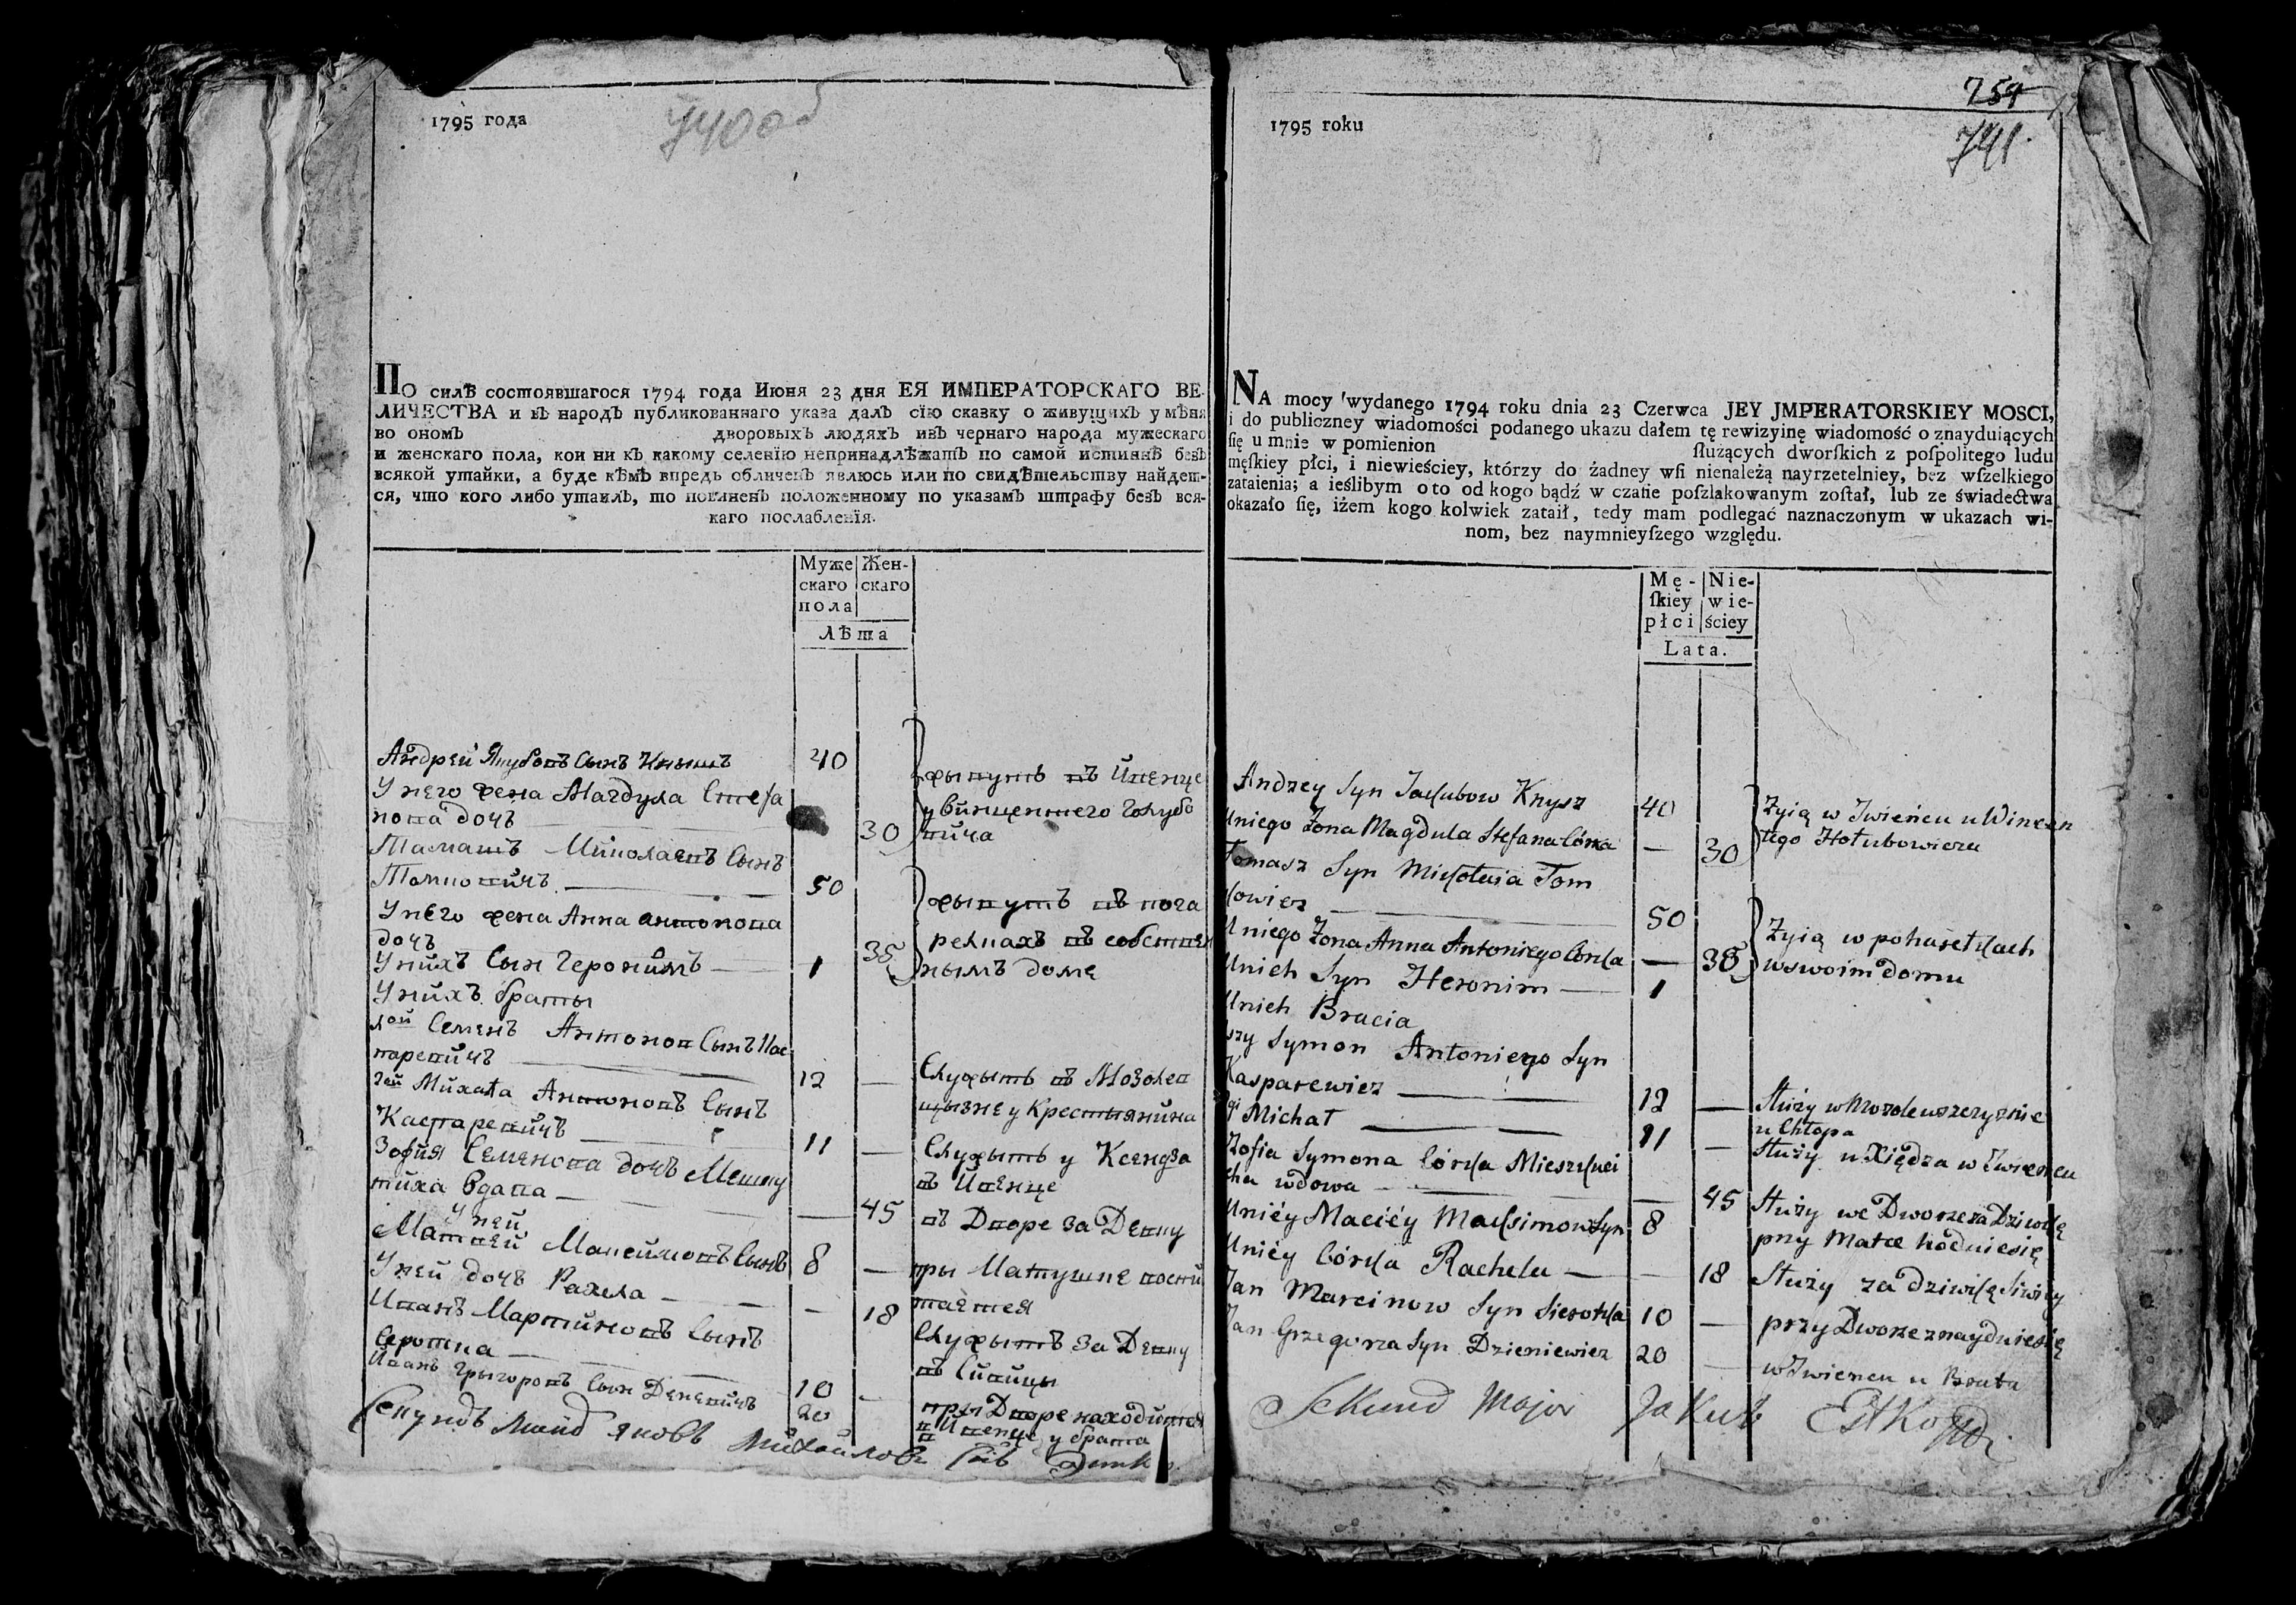 1795 года
740 об
По силѣ состоявшагося 1794 года Июня 23 дня ЕЯ ИМПЕРАТОРСКАГО ВЕ-
ЛИЧЕСТВА и въ народѣ публикованнаго указа далъ сїю сказку о живущихъ у мѣня
во ономъ дворовыхъ людяхъ изъ чернаго народа мужескаго
и женскаго пола, кои ни къ какому селенїю непринадлѣжатъ по самой истиннѣ безъ
всякой утайки, а буде кѣмъ впредь обличенъ явлюсь или по свидѣтельству найдет-
ся, что кого либо утаилъ, то повиненъ положенному по указамъ штрафу безъ вся-
каго послабленїя.
Муже скаго пола
Жен- скаго
Лѣта
Андрей Якубовъ Сынъ Кнышъ 40
У него жена Магдула Стефа
нова дочь 30
жывутъ въ Ивенце
у Винцентего Голубо
вича
Тамашъ Миколаевъ Сынъ
Томковичъ 50
У него жена Анна антонова
дочь 35
У нихъ Сын Геронимъ 1
жывутъ въ пога
релкахъ въ собствен
нымъ доме
У нихъ браты
1ой Семенъ Антонов Сынъ Кас
паревичъ 12 —
Служыть в Мозолев
щызне у Крестьянина
2ей Михала Антоновъ Сынъ
Каспаревичъ 11 —
Служыть у Ксендза
въ Ивенце
Зофия Семенова дочь Мешку
тиха Вдава — 45
въ Дворе за Девку
у ней
Матвей Максимовъ Сынъ 8 —
пры Матушке воспи
таетея
У ней дочь Рахела — 18
Служытъ за Девку
въ Сивицы
Иванъ Мартиновъ Сынъ
Сиротка 10 —
пры Дворе находитея
Иванъ Грыгоровъ Сын Деневичъ 20
в Ивенце у брата
Секундъ Маиоръ Яковъ Михайловъ Сынъ
754
741.
1795 roku
NA mocy wydanego 1794 roku dnia 23 Czerwca JEY JMPERATORSKIEY MOSCI,
i do publiczney wiadomości podanego ukazu dałem tę rewizyinę wiadomość o znayduiących
ſię u mnie w pomienion ſłużących dworſkich z poſpolitego ludu
męſkiey płci, i niewieściey, którzy do żadney wſi nienależą nayrzetelniey, bez wſzelkiego
zataienia; a ieślibym oto od kogo bądź w czaſie poſzlakowanym zoſtał, lub ze świadectwa
okazało ſię, iżem kogo kolwiek zataił, tedy mam podlegać naznaczonym w ukazach wi-
nom, bez naymnieyſzego względu.
Mę- ſkiey płci
Nie- wie- ściey
Lata.
Andrzey Syn Jakubow Knysz 40
Uniego Żona Magdula Stefana Córka — 30
Zyią w Iwieńcu u Wincen
tego Hołubowicza
Tomasz Syn Mikołaia Tom
kowicz 50
Uniego Żona Anna Antoniego Córka — 38
Unich Syn Heronim 1
Zyią w pohorełkach
w swoim domu
Unich Bracia
szy Symon Antoniego Syn
Kasparewicz 12 —
Służy w Mozolewszczyznie
u Chłopa
gi Michał 11 —
Służy u Xiędza w Iwieńcu
Zofia Symona Córka Mieszkuci
cha wdowa — 45
Służy we Dworze za Dziwkę
Uniéy Maciéy Maksimow Syn 8
przy Matce hoduie się
Uniéy Córka Rachela — 18
Służy za dziwkę Siwicy
Jan Marcinow Syn Sierotka 10 —
przy Dworze znayduie się
Jan Grzegorza Syn Dzieniewicz 20 —
w Iwiencu u Brata
Sekund Major Jakub Estko